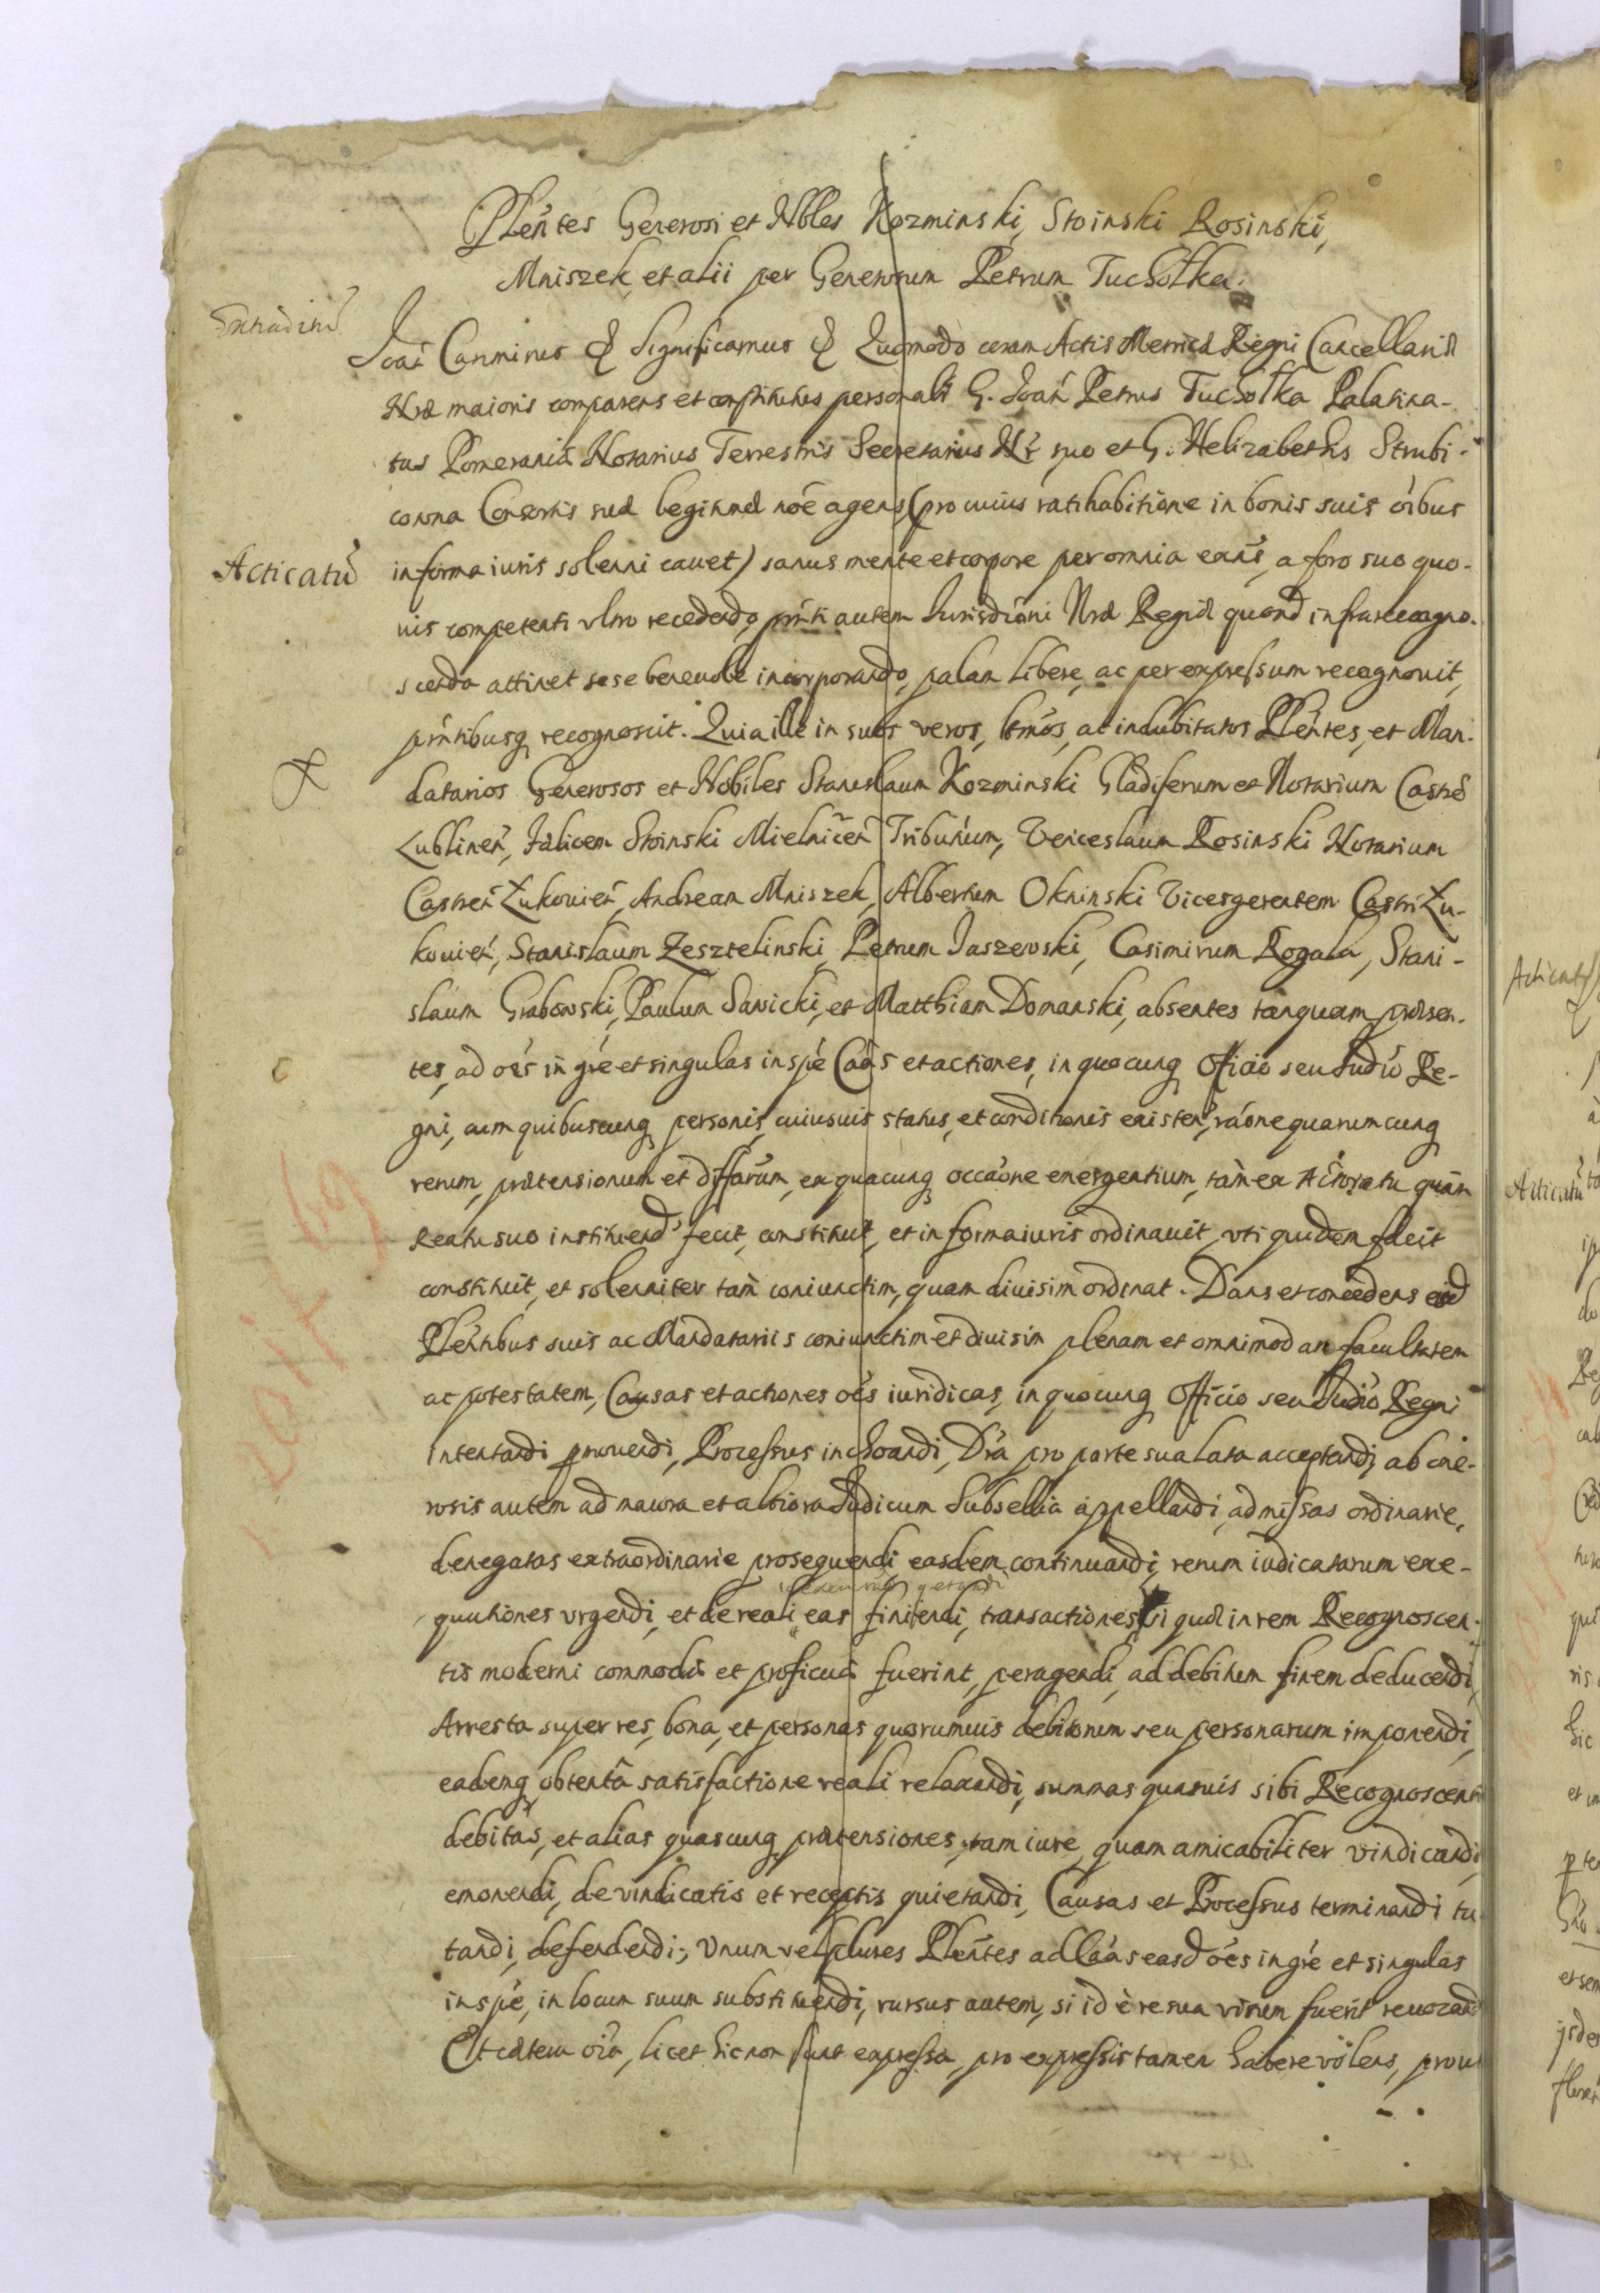 Plentes Generosi et Nbles Kozminski, Stoinski Rosinski,
Mniszek, et alii per Generosum Petrum Tucholka.
Joan̄ Casimirus & Significamus & Quomodo coram Actis Metricæ Regni Cancellariæ
Nræ maioris comparens et constitutus personalr G. Joan̄ Petrus Tucholka Palatina-
tus Pomeraniæ Notarius Terrestris Secretarius Nr̄ suo et G. Helizabethis Strubi-
cowna Consortis suæ legitimæ nōe agens (pro cuius ratihabitione in bonis suis oībus
Acticatū
in forma iuris solenni cauet) sanus mente et corpore per omnia exns, a foro suo quo-
uis competenti vltro recedendo, prn̄ti autem Jurisdiōni Nræ Regiæ quoad infra recogno-
scenda attinet sese beneuole incorporando, palam libere, ac per expressum recognouit,
prn̄tibusq recognoscit. Quia ille in suos veros, ltmos, ac indubitatos Plentes, et Man-
datarios Generosos et Nobiles Stanislaum Kozminski Gladiferum et Notarium Castrē
Lublinen̄, Fælicem Stoinski Mielnicen̄ Tribunum, Venceslaum Rosinski Notarium
Castren̄ Łukouien̄, Andream Mniszek, Albertum Okninski Vicesgerentem Castri Łu-
kouien̄, Stanislaum Zesztelinski, Petrum Jaszewski, Casimirum Rogala, Stani-
slaum Grabowski, Paulum Sawicki, et Matthiam Domanski, absentes tanquam præsen-
tes, ad oēs in gñe et singulas in spē Cāas et actiones, in quocunq Officio seu Judio Re-
gni, cum quibuscunq personis, cuiusuis status, et conditionis existen̄, raōne quarumcunq
rerum, prætensionum et differarum, ex quacunq occaōne emergentium, tam ex Actoratu quàm
Reatu suo instituend fecit, constituit, et in forma iuris ordinauit, vti quidem facit
constituit, et solenniter tam coniunctim, quam diuisim ordinat. Dans et concedens eisd
Plentibus suis ac Mandatariis coniunctim et diuisim plenam et omnimodam facultatem
ac potestatem, Causas et actiones oēs iuridicas, in quocunq Officio seu Judio Regni
intentandi promouendi, Processus inchoandi, Dra pro parte sua lata acceptandi, ab one-
rosis autem ad maiora et altiora Judicum Subsellia appellandi, admissas ordinarie,
denegatas extraordinarie prosequendi, easdem continuandi, rerum iudicatarum exe-
quutiones vrgendi, et de reali eas finiendi, transactiones si quæ in rem Recognoscen-
tis moderni commodæ et proficuæ fuerint, peragendi, ad debitum finem deducendi,
Arresta super res, bona, et personas quorumuis debitorum seu personarum imponendi,
eademq obtenta satisfactione reali relaxandi, summas quasuis sibi Recognoscenti
debitas, et alias quascunq prætensiones, tam iure, quam amicabiliter vindicandi
emonendi, de vindicatis et receptis quietandi, Causas et Processus terminandi tu-
tandi, defendendi, Unum vel plures Plentes ad Cāas easd oēs in gñe et singulas
in spē, in locum suum substituendi, rursus autem, si id è re sua visum fuerit reuocand
Et cætera oīa, licet hic non sunt expressa, pro expressis tamen habere volens, prout